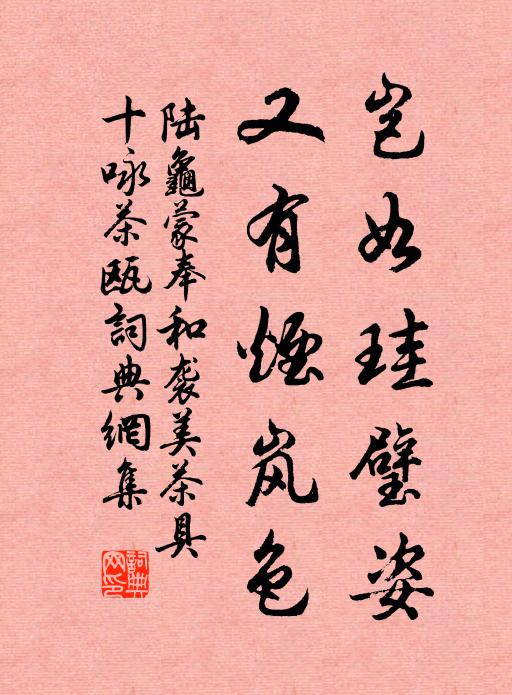 岂如珪璧姿
又有煙岚色
陆龜蒙奉和袭美茶具
十咏茶瓯詞典網集
詞典網印